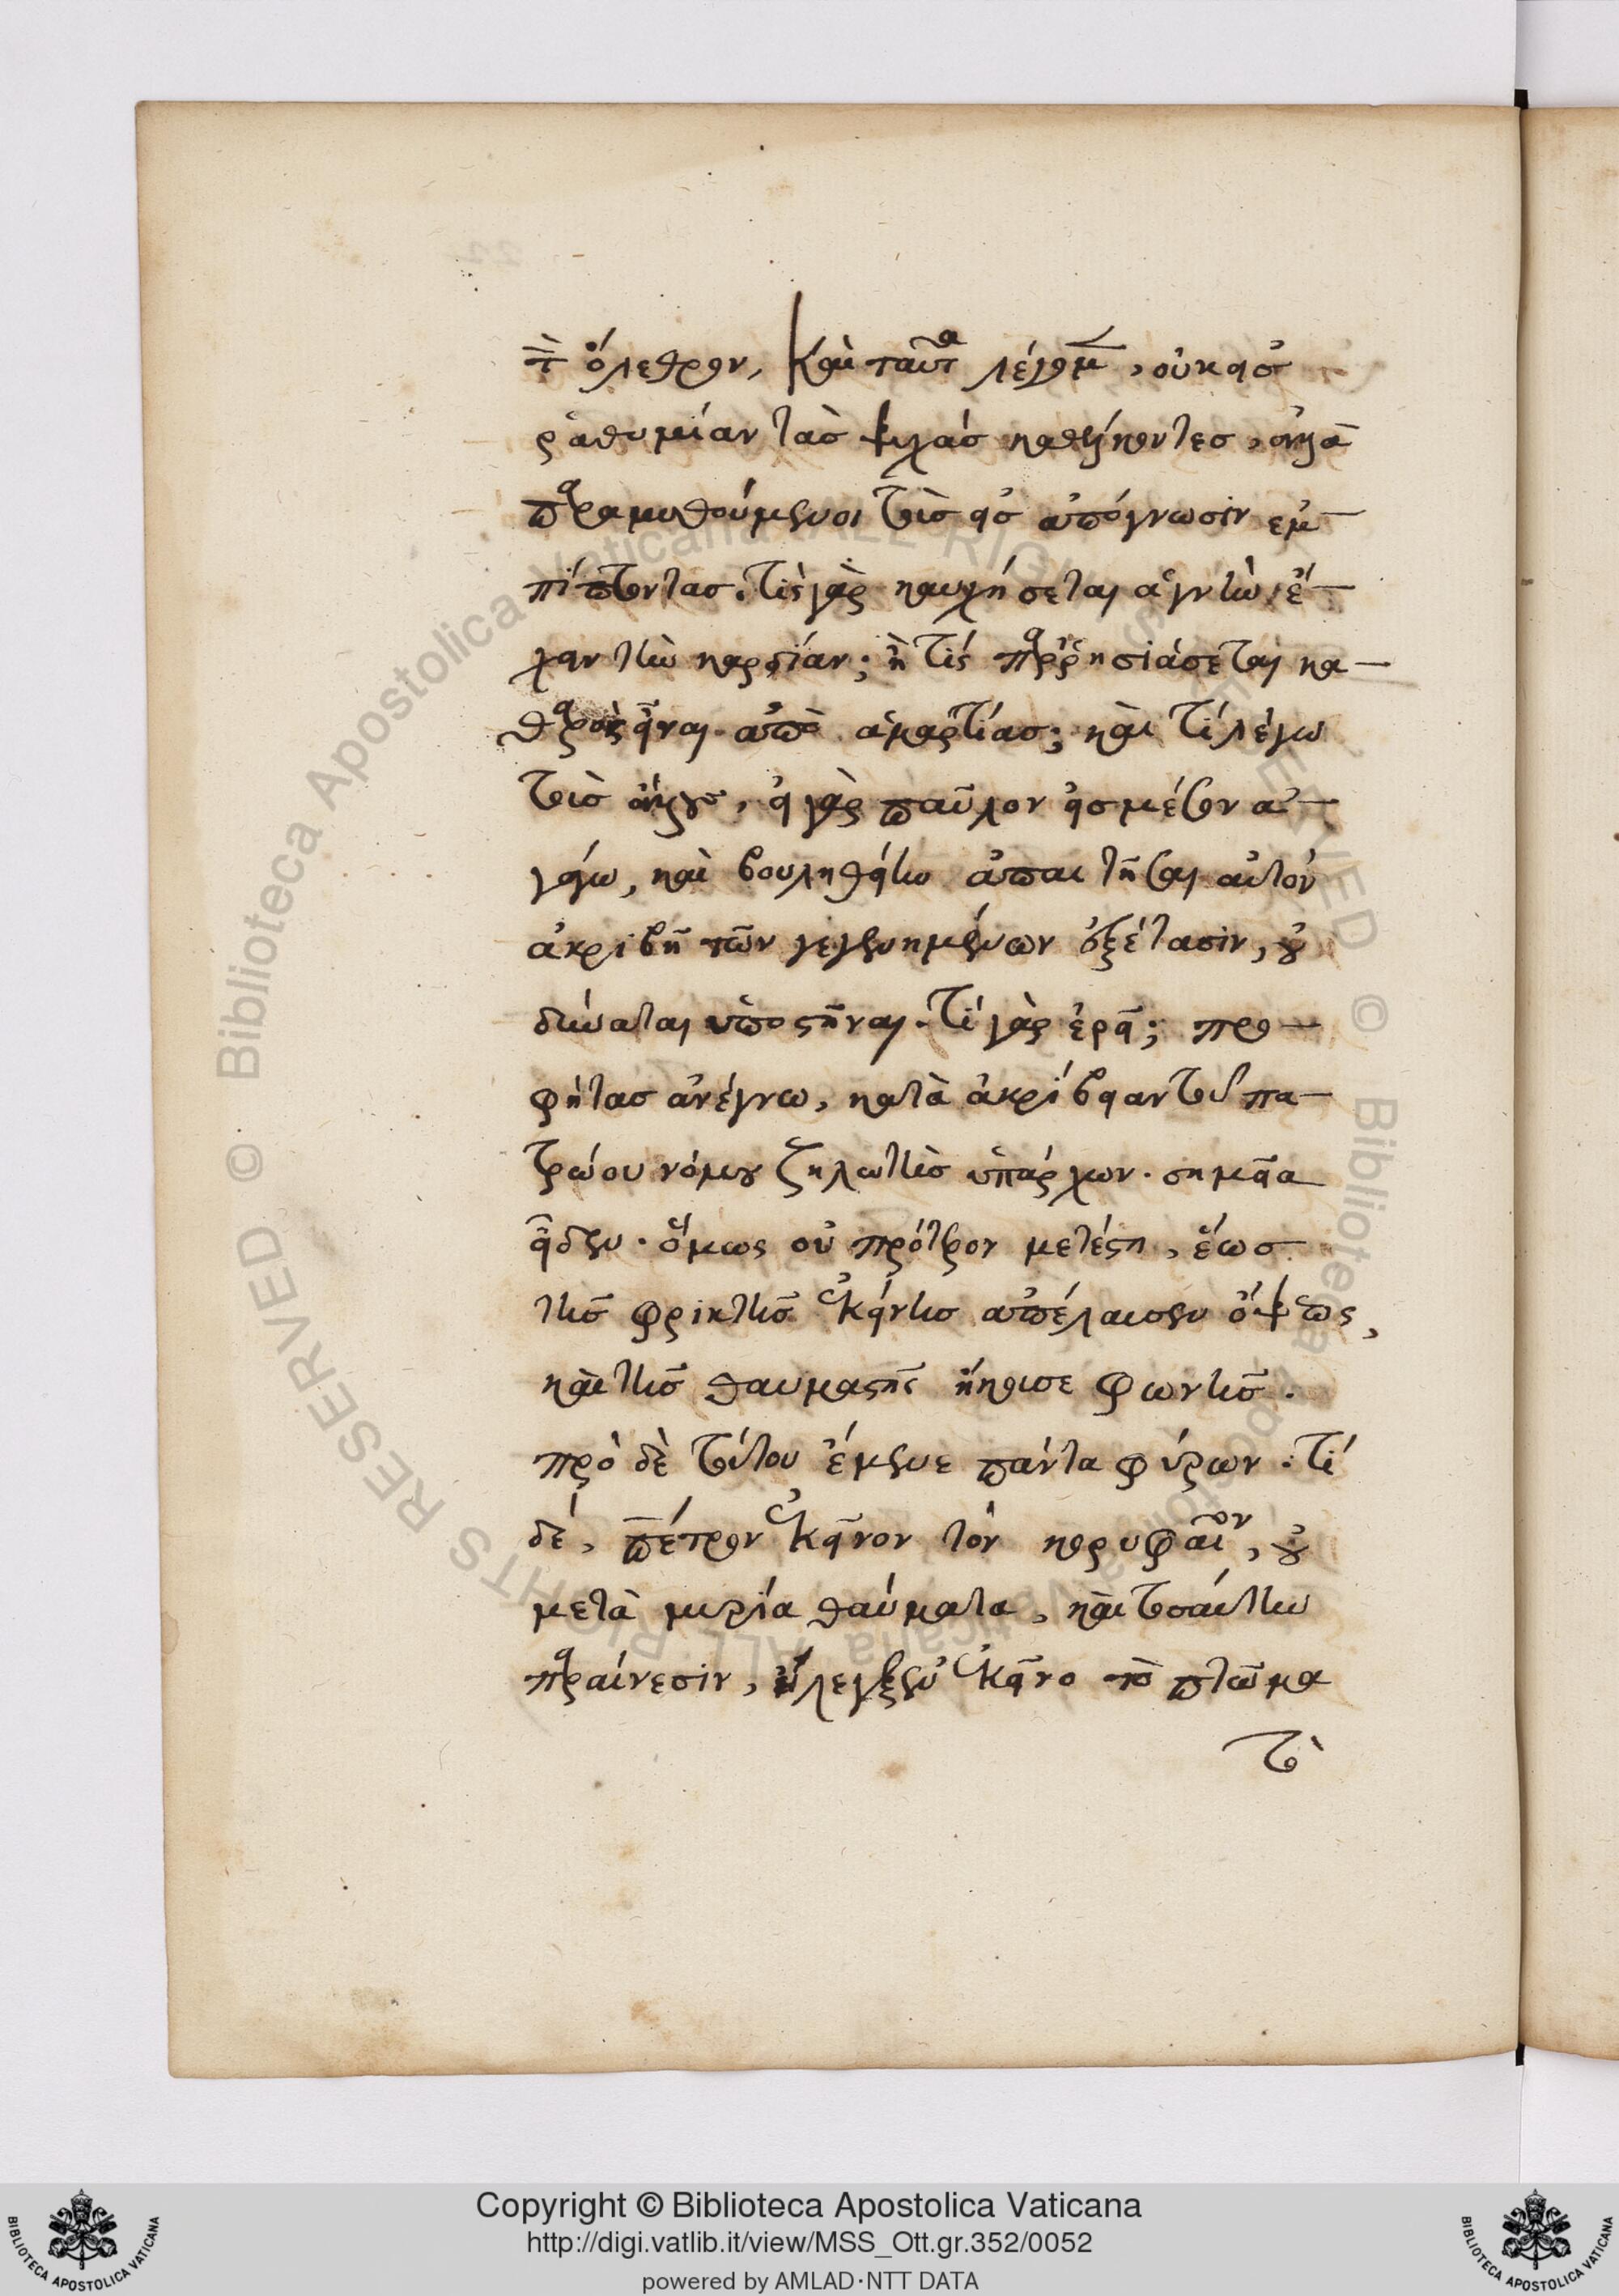 τὸν ὄλεθρον, Καὶ ταῦτα λέγομεν, οὐκ εἰς
ῥαθυμίαν τὰς ψυχὰς καθέλκοντες, ἀλλὰ
παραμυθούμενοι τοὺς εἰς ἀπόγνωσιν ἐμ-
πίπτοντας. τίς γὰρ καυχήσεται ἁγνὴν ἔ-
χειν τὴν καρδίαν; ἢ τίς παρρησιάσεται κα-
θαρὸς εἶναι ἀπὸ ἁμαρτίας; καὶ τί λέγω
τοὺς ἄλλους, εἰ γὰρ παῦλον εἰς μέσον ἀ-
γάγω, καὶ βουληθείην ἀπαιτῆσαι αὐτὸν
ἀκριβῆ τῶν γεγενημένων ἐξέτασιν, οὐ
δύναται ὑποστῆναι. τί γὰρ ἐρεῖ; προ-
φήτας ἀνέγνω, κατὰ ἀκρίβειαν τοῦ πα-
τρώου νόμου ζηλωτὴς ὑπάρχων. σημεῖα
εἶδεν. ὅμως οὐ πρότερον μετέστη, ἕως
τῆς φρικτῆς ἐκείνης ἀπέλαυσεν ὄψεως,
καὶ τῆς θαυμαστῆς ἤκουσε φωνῆς.
πρὸ δὲ τούτου ἔμενε πάντα φύρων. τί
δέ, πέτρον ἐκεῖνον τὸν κορυφαῖον, οὐ
μετὰ μυρία θαύματα, καὶ τοσαύτην
παραίνεσιν, ἤλεγξεν ἐκεῖνο τὸ πτῶμα
τὸ
Copyright © Biblioteca Apostolica Vaticana
http://digi.vatlib.it/view/MSS_Ott.gr.352/0052
powered by AMLAD·NTT DATA